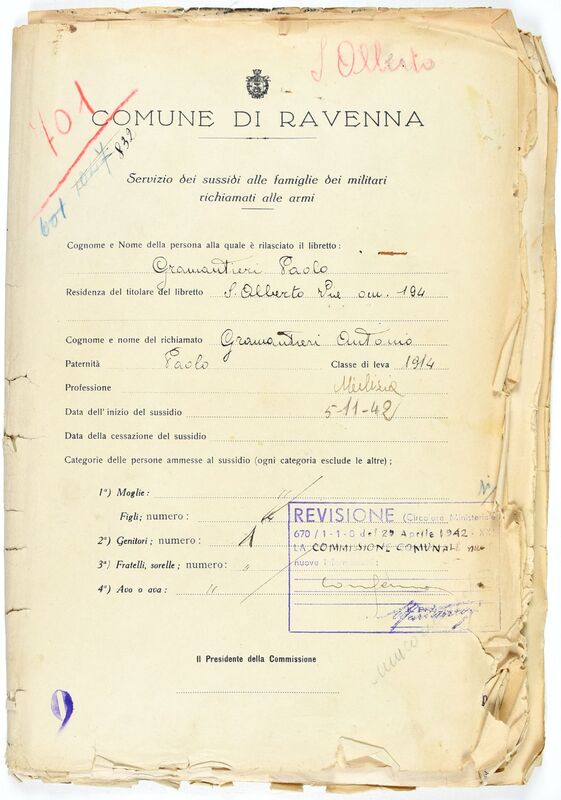 S Alberto
701
COMUNE DI RAVENNA
832
601
Servizio dei sussidi alle famiglie dei militari
richiamati alle armi
Cognome e Nome della persona alla quale è rilasciato il libretto:
Gramantieri Paolo
Residenza del titolare del libretto S. Alberto 194
Cognome e nome del richiamato Gramantieri Antonio
Paternità Paolo Classe di leva 1914
Professione Milizia
Data dell'inizio del sussidio 5-11-42
Data della cessazione del sussidio
Categorie delle persone ammesse al sussidio (ogni categoria esclude le altre);
1°) Moglie: "
Figli; numero:
2°) Genitori; numero: 1
3°) Fratelli, sorelle; numero: "
4°) Avo o ava: "
REVISIONE (Circolare Ministeriale
670/1-1-8 del 29 Aprile 1942-XX
LA COMMISSIONE COMUNALE
nuove
conferma
Il Presidente della Commissione